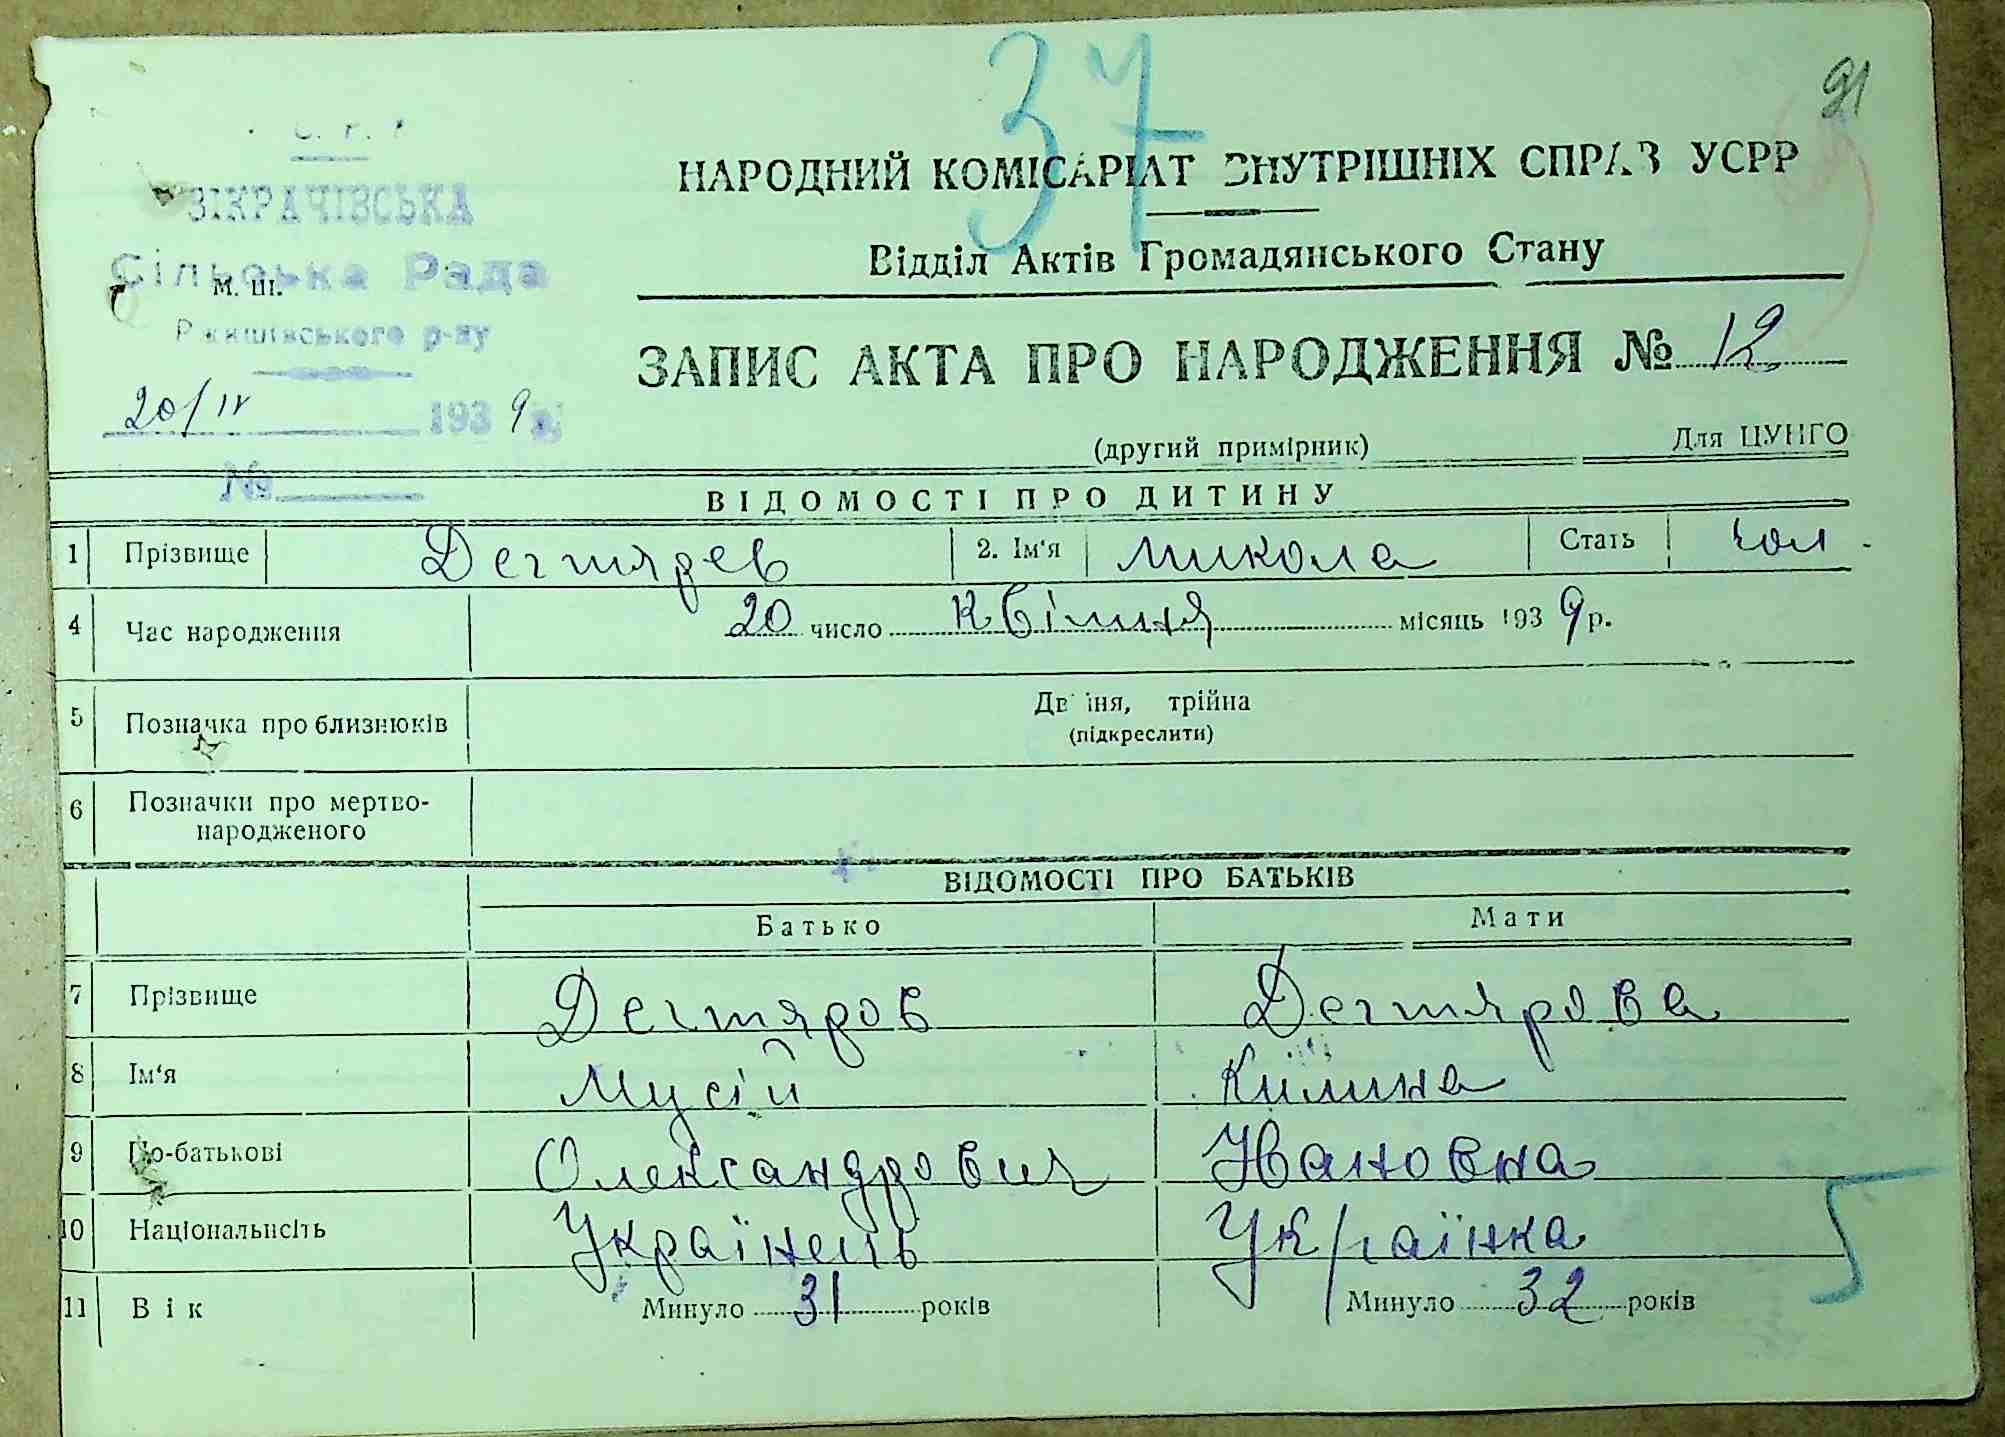 37
91
ЗІКРАЧІВСЬКА
Сільська Рада
М. Ш.
Ржищівського р-ну
20/IV 1939 р.
№
НАРОДНИЙ КОМІСАРІАТ ВНУТРІШНІХ СПРАВ УСРР
Відділ Актів Громадянського Стану
ЗАПИС АКТА ПРО НАРОДЖЕННЯ № 12
(другий примірник) Для ЦУНГО
ВІДОМОСТІ ПРО ДИТИНУ
1 Прізвище Дегтярев 2. Ім'я Микола Стать чол.
4 Час народження 20 число квітня місяць 1939 р.
5 Позначка про близнюків Двійня, трійна
(підкреслити)
6 Позначки про мертво-
народженого
ВІДОМОСТІ ПРО БАТЬКІВ
Батько Мати
7 Прізвище Дегтяров Дегтярова
8 Ім'я Мусій Килина
9 По-батькові Олександрович Івановна
10 Національність Українець Українка
5
11 Вік Минуло 31 років Минуло 32 років